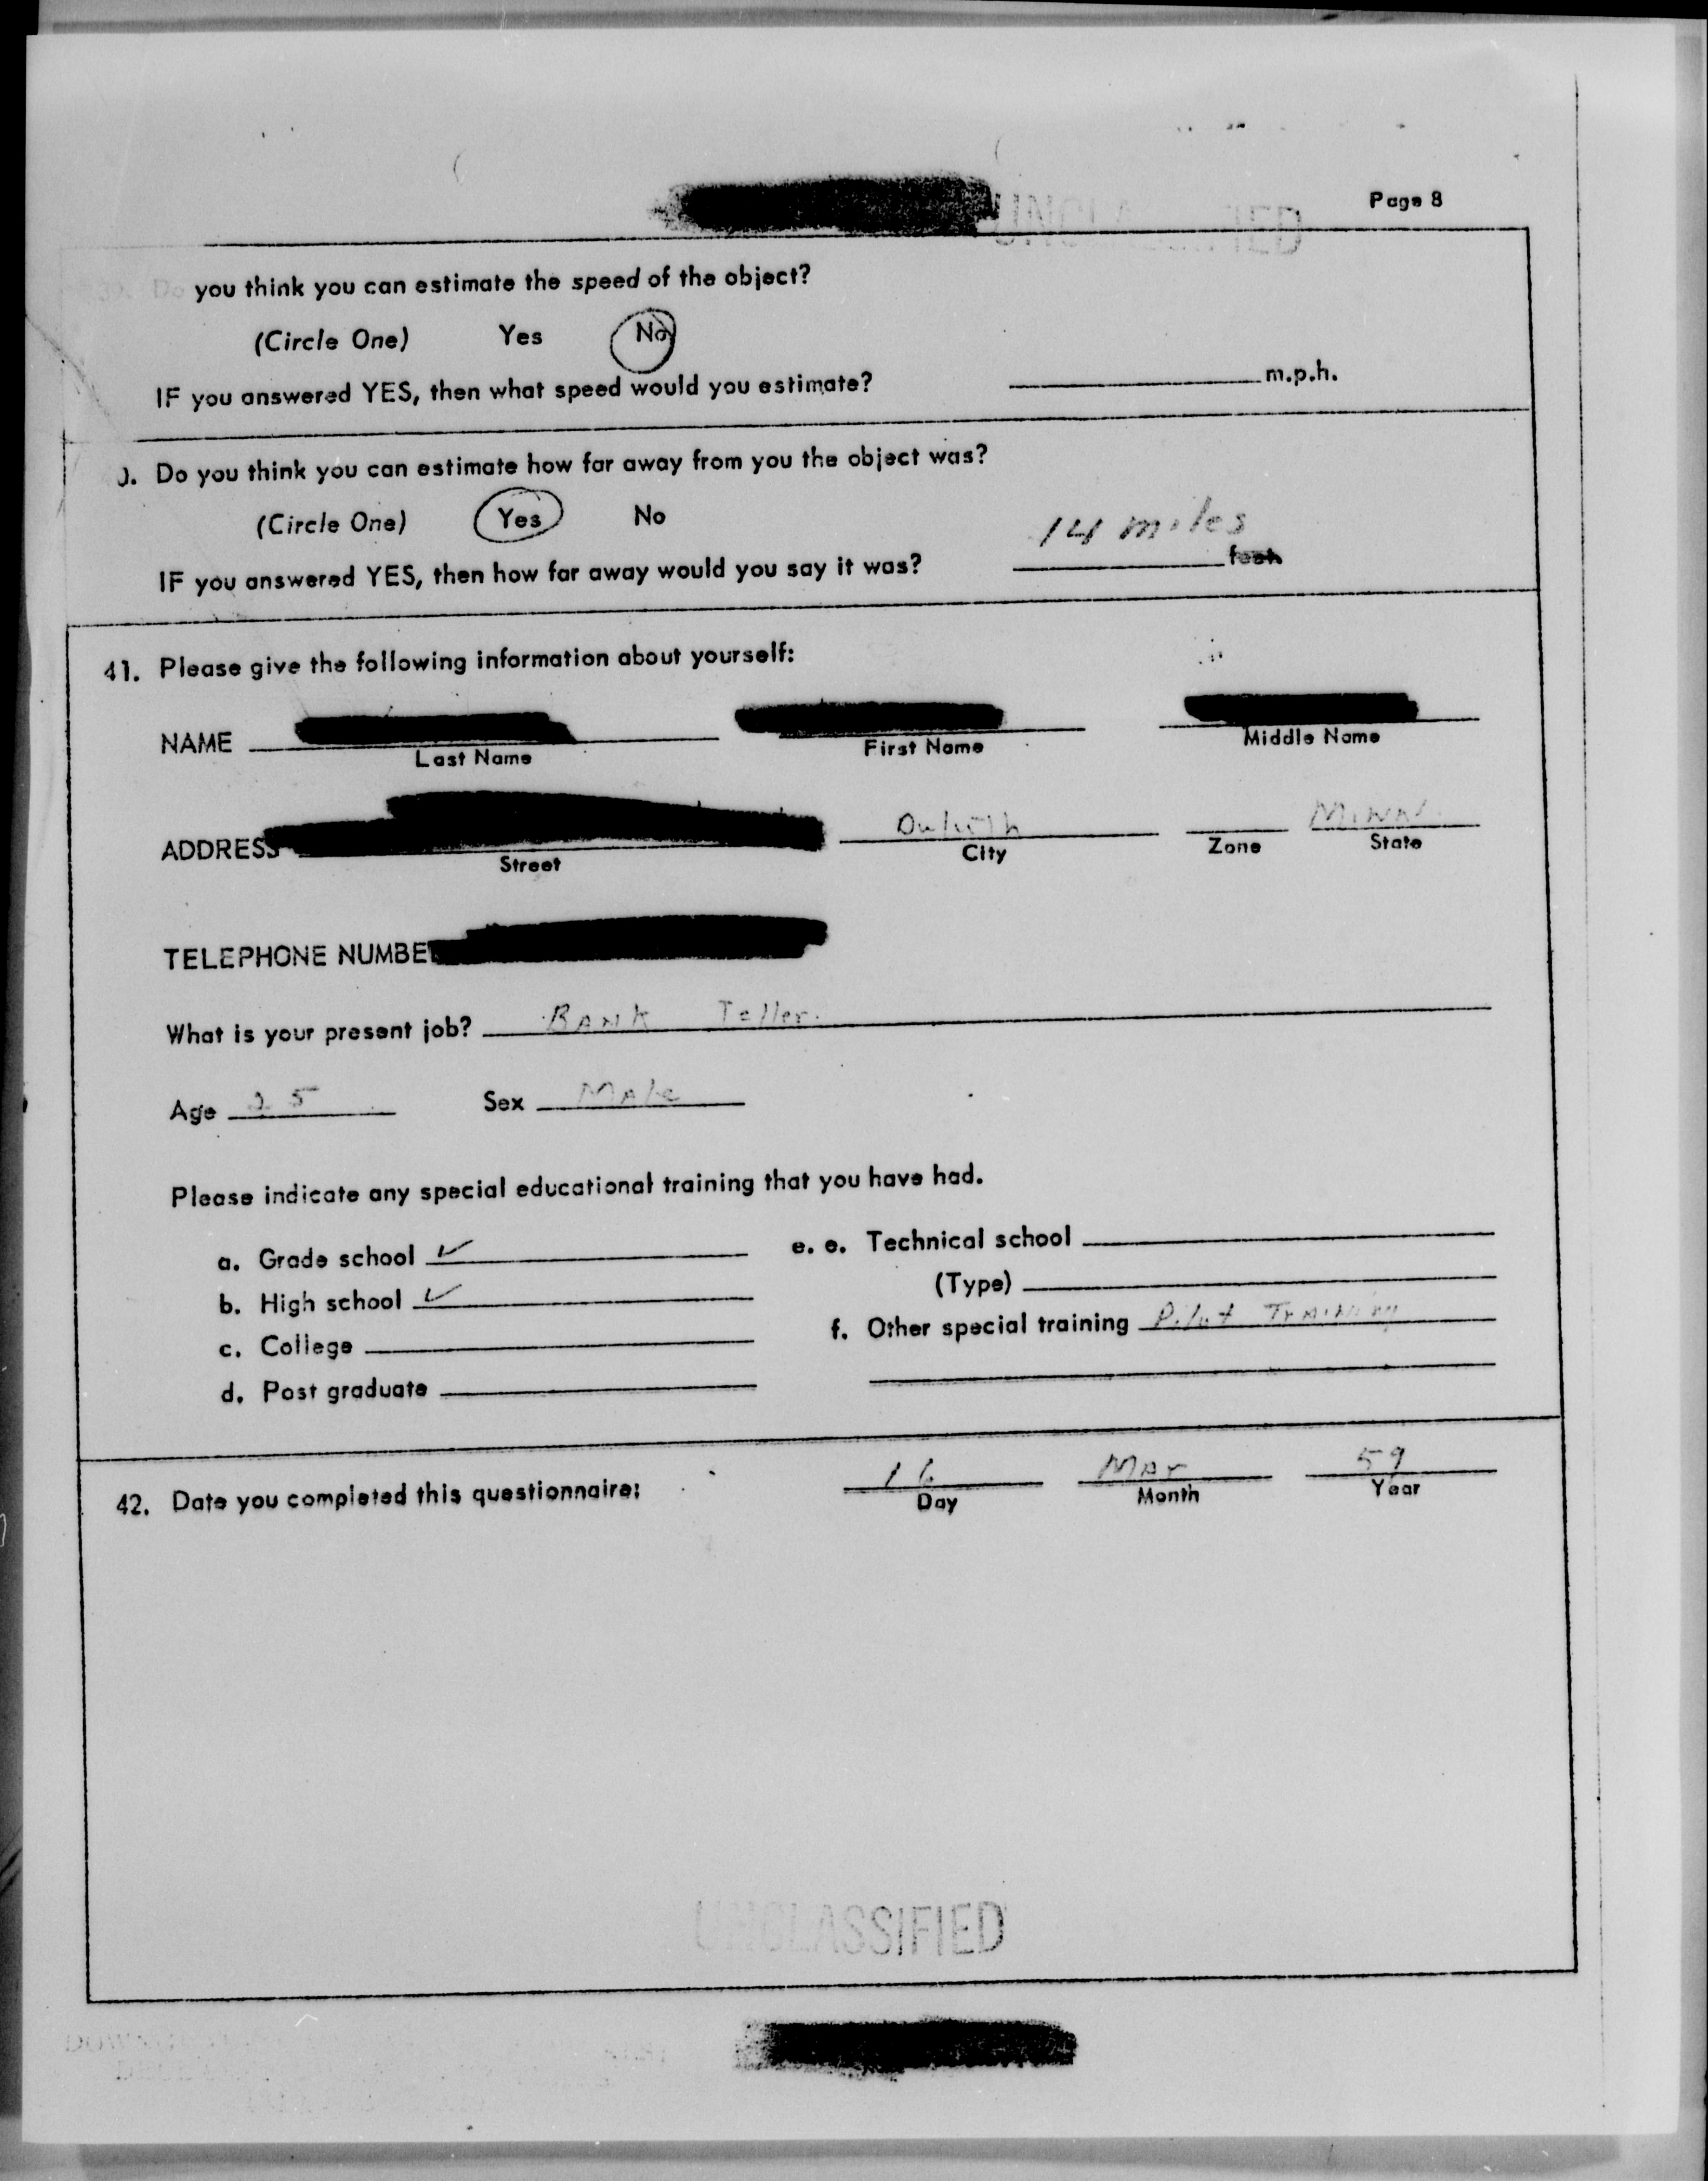 UNCLASSIFIED
Page 8
you think you can estimate the speed of the object?
(Circle One) Yes No
IF you answered YES, then what speed would you estimate? m.p.h.
). Do you think you can estimate how far away from you the object was?
(Circle One) Yes No
14 miles
IF you answered YES, then how far away would you say it was? feet
41. Please give the following information about yourself:
NAME
Last Name First Name Middle Name
ADDRESS Duluth Minn.
Street City Zone State
TELEPHONE NUMBE
What is your present job? BANK Teller.
Age 25 Sex Male
Please indicate any special educational training that you have had.
a. Grade school ✓ e. e. Technical school
b. High school ✓ (Type)
c. College f. Other special training Pilot Training
d. Post graduate
42. Date you completed this questionnaire: 16 Mar 59
Day Month Year
UNCLASSIFIED